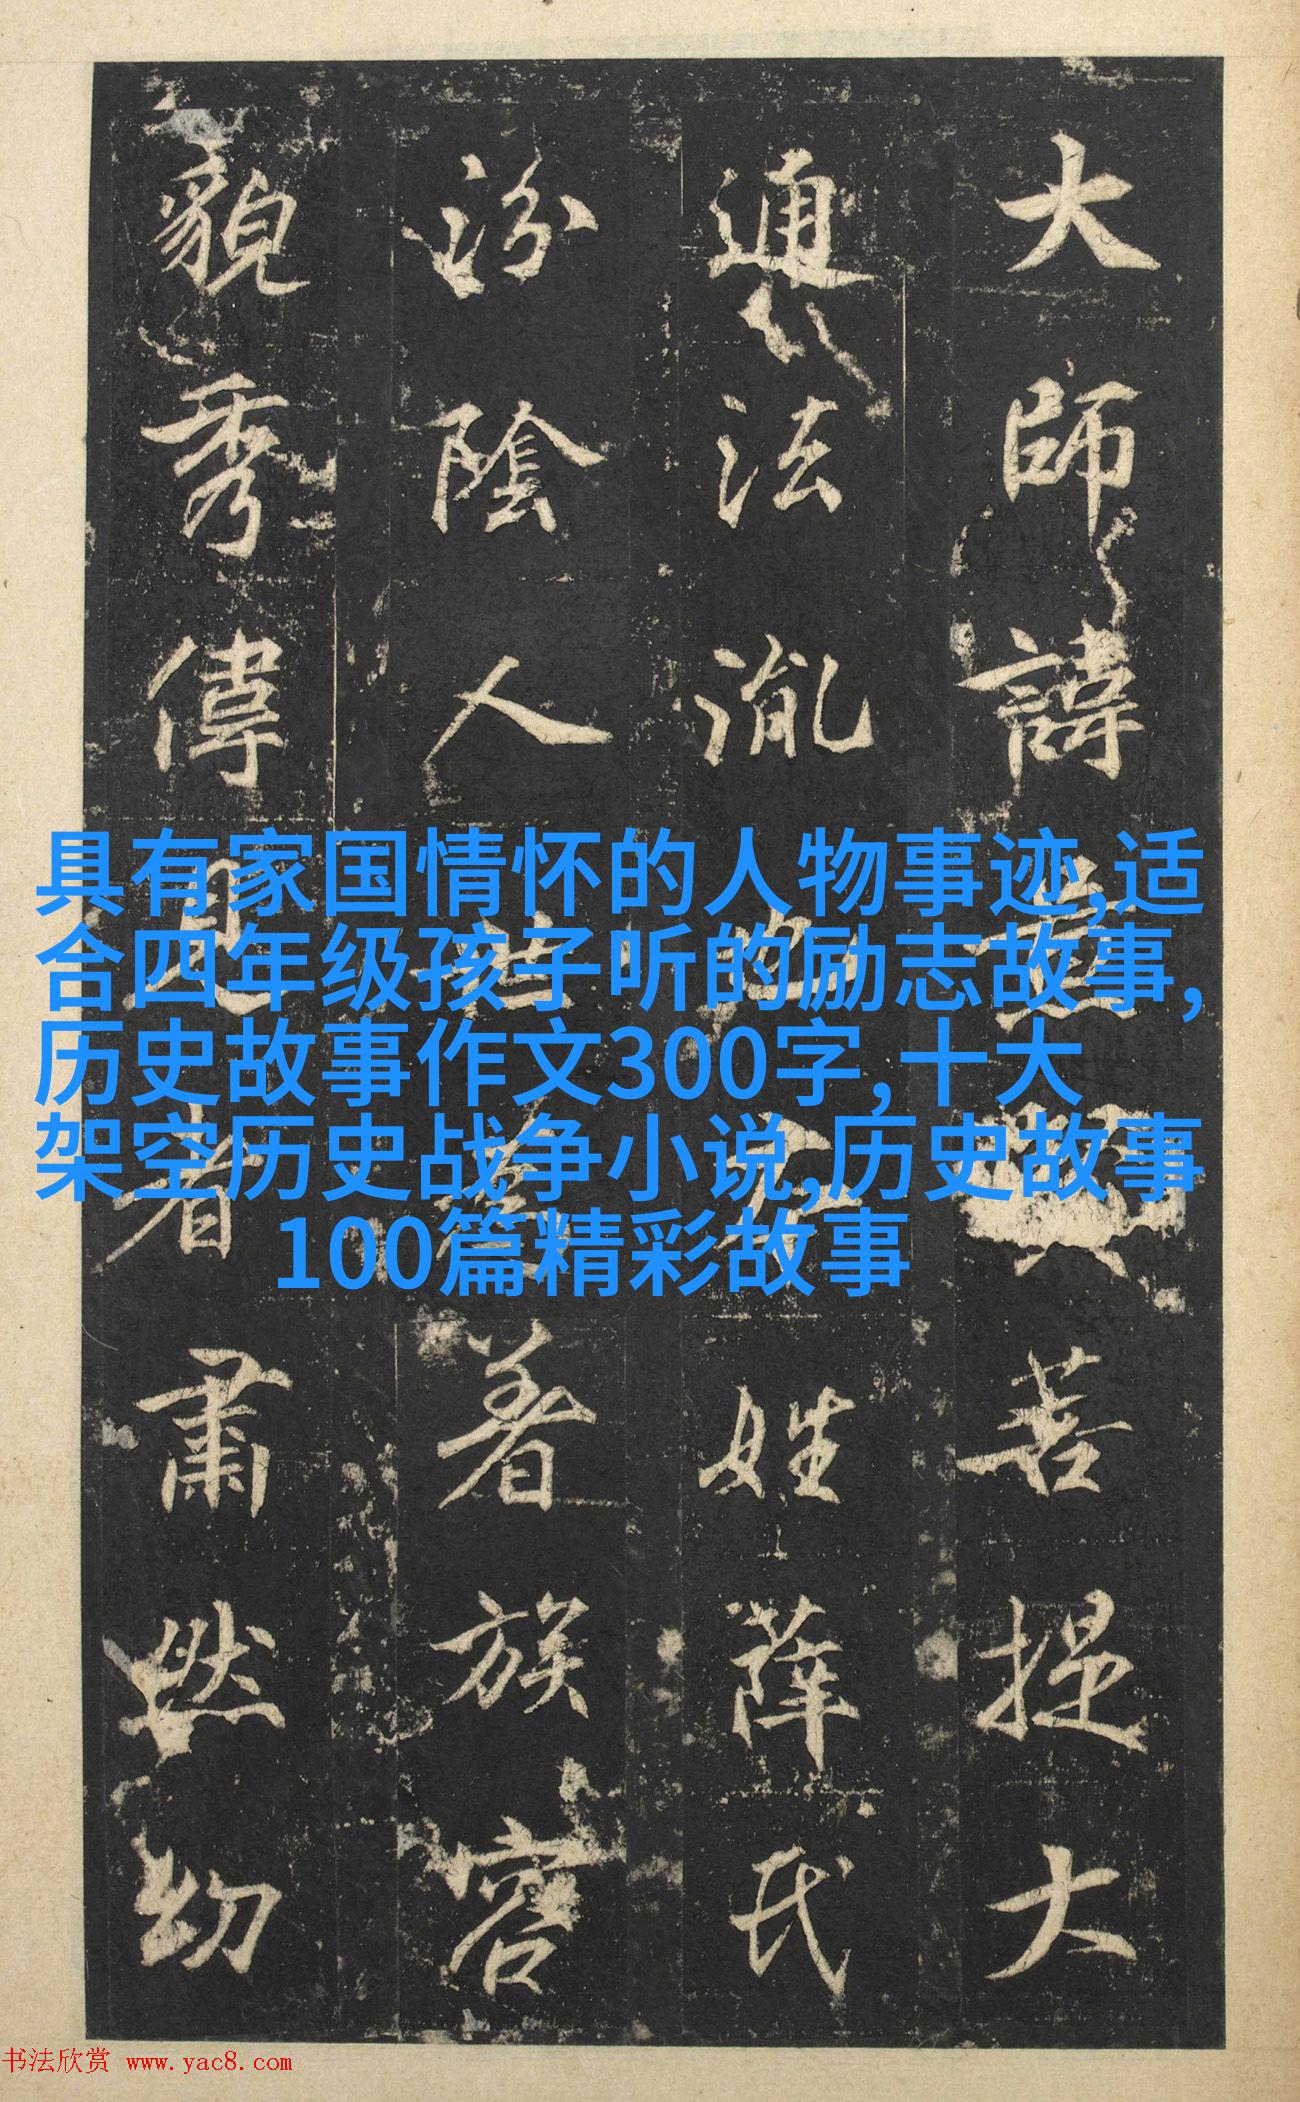 大師諱菩提大
通法胤也姓薛氏
汾陰人世著族容
貌秀偉見者肅然幼
具有家国情怀的人物事迹,适
合四年级孩子听的励志故事,
历史故事作文300字,十大
架空历史战争小说,历史故事
100篇精彩故事
书法欣赏 www.yac8.com